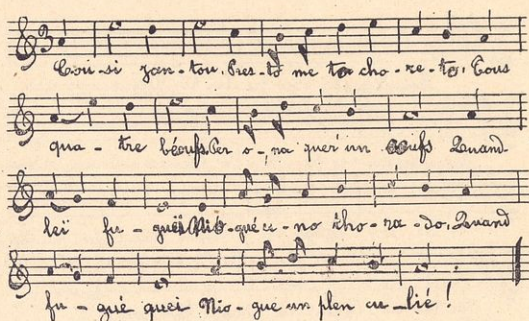 Cou-si Jan-tou, Pres-to me ta cho-re-to, Tous
qua-tre béoufs Per o-na quer un oeufs Quand
lei fu-guei Nio-gué u-no cho-ra-do, Quand
fu-gué quei Nio-gue un plen cu-lié !